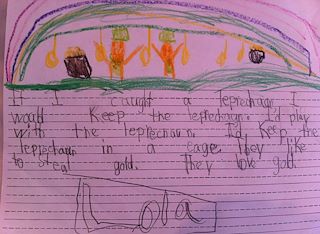 If I caught a leprechaun I
would keep the leprechaun. I'd play
with the leprechaun. I'd keep the
leprechaun in a cage. They like
to steal gold. They love gold.
Lola